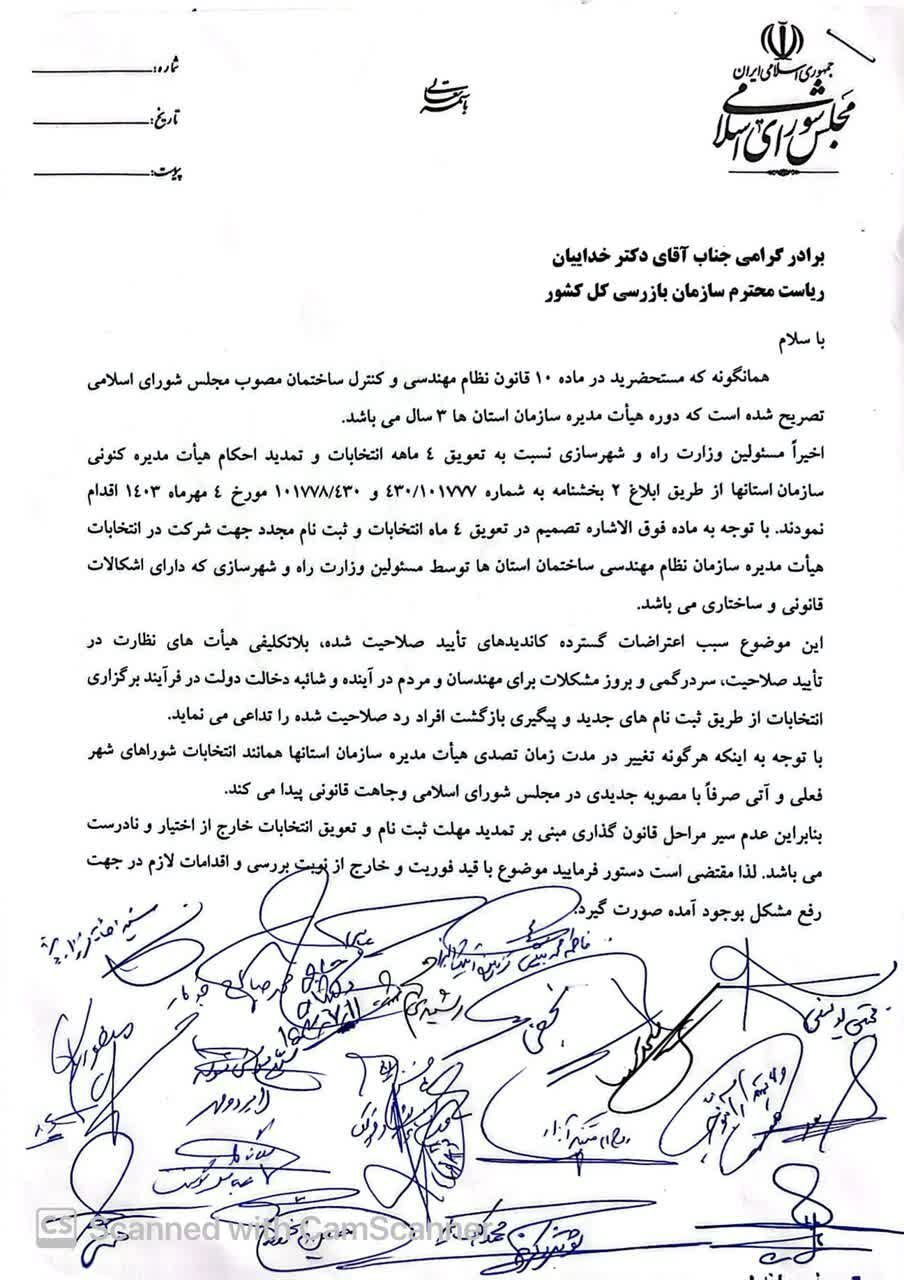 جمهوری اسلامی ایران
مجلس شورای اسلامی
باسمه تعالی
شماره:
تاریخ:
پیوست:
برادر گرامی جناب آقای دکتر خداییان
ریاست محترم سازمان بازرسی کل کشور
با سلام
همانگونه که مستحضرید در ماده ۱۰ قانون نظام مهندسی و کنترل ساختمان مصوب مجلس شورای اسلامی
تصریح شده است که دوره هیأت مدیره سازمان استان ها ۳ سال می باشد.
اخیراً مسئولین وزارت راه و شهرسازی نسبت به تعویق ٤ ماهه انتخابات و تمدید احکام هیأت مدیره کنونی
سازمان استانها از طریق ابلاغ ۲ بخشنامه به شماره ٤۳۰/۱۰۱۷۷۷ و ۱۰۱۷۷۸/٤۳۰ مورخ ٤ مهرماه ۱٤۰۳ اقدام
نمودند. با توجه به ماده فوق الاشاره تصمیم در تعویق ٤ ماه انتخابات و ثبت نام مجدد جهت شرکت در انتخابات
هیأت مدیره سازمان نظام مهندسی ساختمان استان ها توسط مسئولین وزارت راه و شهرسازی که دارای اشکالات
قانونی و ساختاری می باشد.
این موضوع سبب اعتراضات گسترده کاندیدهای تأیید صلاحیت شده، بلاتکلیفی هیأت های نظارت در
تأیید صلاحیت، سردرگمی و بروز مشکلات برای مهندسان و مردم در آینده و شائبه دخالت دولت در فرآیند برگزاری
انتخابات از طریق ثبت نام های جدید و پیگیری بازگشت افراد رد صلاحیت شده را تداعی می نماید.
با توجه به اینکه هرگونه تغییر در مدت زمان تصدی هیأت مدیره سازمان استانها همانند انتخابات شوراهای شهر
فعلی و آتی صرفاً با مصوبه جدیدی در مجلس شورای اسلامی وجاهت قانونی پیدا می کند.
بنابراین عدم سیر مراحل قانون گذاری مبنی بر تمدید مهلت ثبت نام و تعویق انتخابات خارج از اختیار و نادرست
می باشد. لذا مقتضی است دستور فرمایید موضوع با قید فوریت و خارج از نوبت بررسی و اقدامات لازم در جهت
رفع مشکل بوجود آمده صورت گیرد.
فاطمه محمدبیگی
محمد صالح جوکار
رشیدی
مجتبی یوسفی
نجفی
CS Scanned with CamScanner